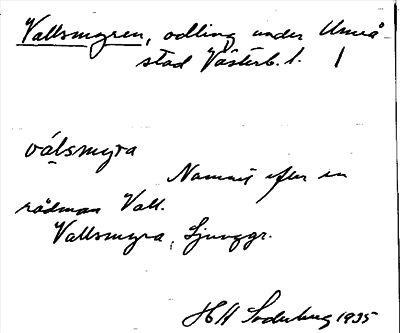 Vallsmyren, odling under Umeå
stad Västerb. l. 1
válsmyra
Namnet efter en
rådman Vall.
Vallsmyra, Ljunggr.
H H Söderberg 1935